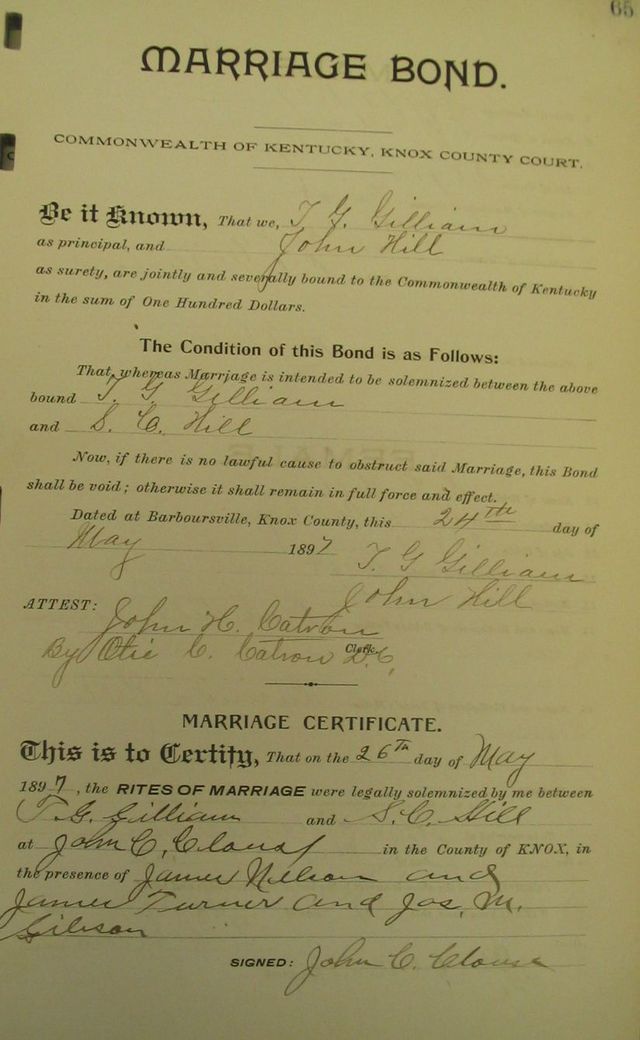 65
MARRIAGE BOND.
COMMONWEALTH OF KENTUCKY, KNOX COUNTY COURT.
Be it Known, That we, T. G. Gilliam
as principal, and John Hill
as surety, are jointly and severally bound to the Commonwealth of Kentucky
in the sum of One Hundred Dollars.
The Condition of this Bond is as Follows:
That, whereas Marriage is intended to be solemnized between the above
bound T. G. Gilliam
and S. C. Hill
Now, if there is no lawful cause to obstruct said Marriage, this Bond
shall be void; otherwise it shall remain in full force and effect.
Dated at Barboursville, Knox County, this 24th day of
May 1897 T. G Gilliam
John Hill
ATTEST: John H. Catron
By Otie C. Catron Clerk D.C.
MARRIAGE CERTIFICATE.
This is to Certify, That on the 26th day of May
1897, the RITES OF MARRIAGE were legally solemnized by me between
T. G. Gilliam and S. C. Hill
at John C, Clous in the County of KNOX, in
the presence of James Nelson and
James Turner and Jos, M.
Gibson
SIGNED: John C. Clouse